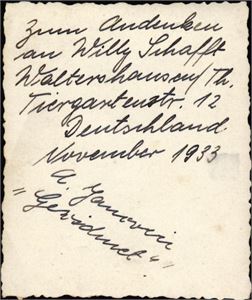 Zum Andenken
an Willy Schafft
Waltershausen/Th.
Tiergartenstr. 12
Deutschland
November 1933
A.
"Gewidmet."